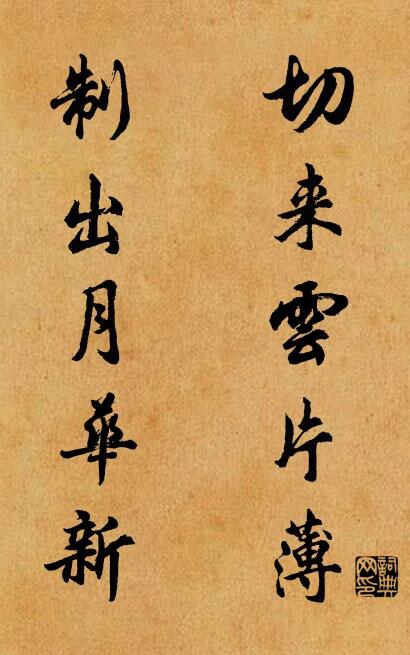 切来雲片薄
制出月華新
詞典網印